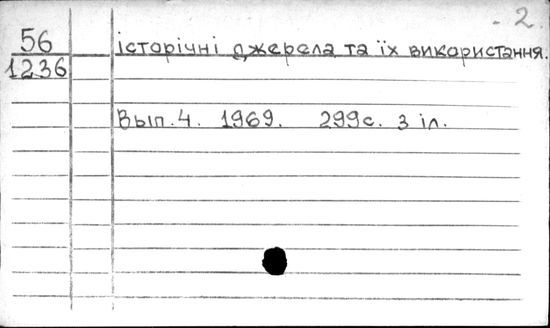 - 2.
56 історічні джерела та їх використання.
1236
Вып. 4. 1969. 299с. з іл.